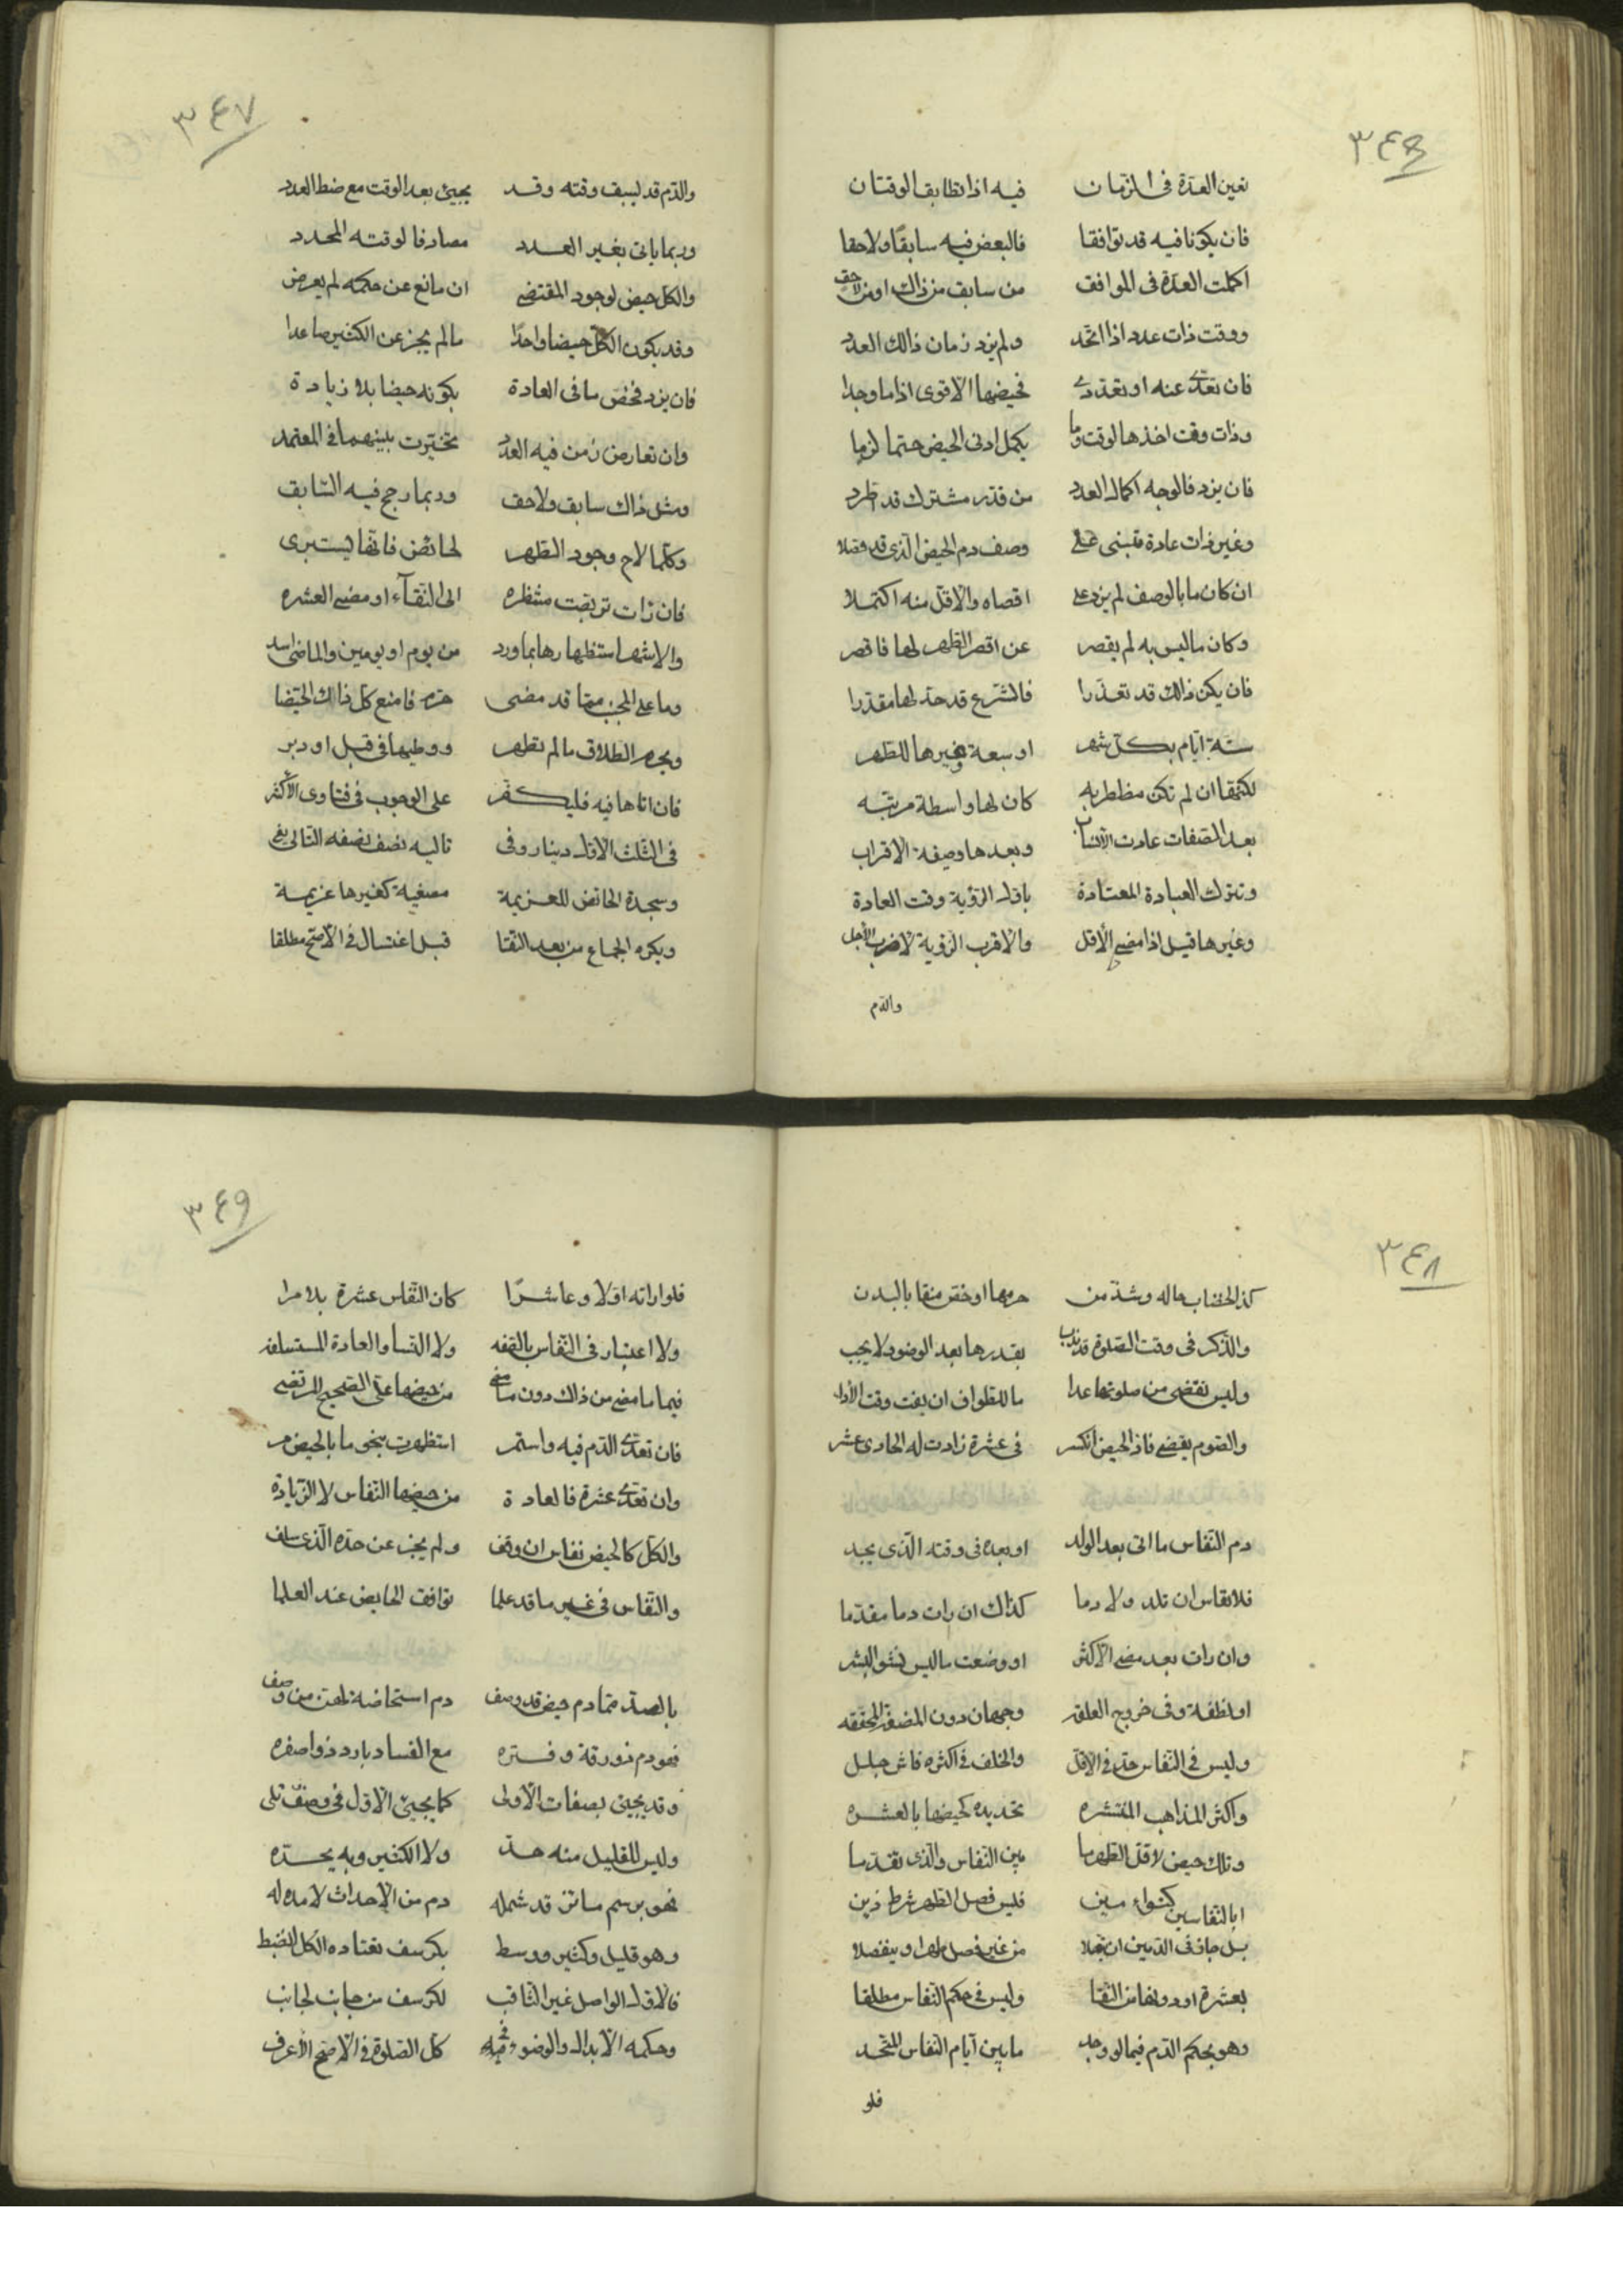 ٣٤٦
تعين العدة فى الزمان فيه اذا تطابق الوقتان
فان يكونا فيه قد توافقا فالبعض فيه سابقًا ولاحقا
اكملت العدة فى الموافق من سابق من ذاك او من لاحق
ووقت ذات عدد اذا اتحد ولم يزد زمان ذالك العدد
فان تعدى عنه او تعددى فحيضها الاقوى اذا ما وجدا
وذات وقت اخذها لوقت وما يكمل ادنى الحيض حتما لزما
فان يزد فالوجه اكمال العدد من قدر مشترك قد اطرد
وغير ذات عادة تبنى على وصف دم الحيض الذى قد فصلا
ان كان ما بالوصف لم يزد على اقصاه والاقل منه اكتملا
وكان ما ليس به لم يقصر عن اقصر الطهر لها فاقصر
فان يكن ذالك قد تعذرا فالشرع قد حد لها مقدرا
ستة ايام بكل شهر او سبعة وغيرها للطهر
لكنها ان لم تكن مضطربه كان لها واسطة مرتبه
بعد الصفات عادت الانساب وبعدها وصفة الاقراب
وتترك العبادة المعتادة باول الرؤية وقت العادة
وغيرها قيل اذا مضى الأقل والاقرب الرؤية لا ضرب الأجل
والدم
٣٤٧
والدم قد يسبق وقته وقد يجيئ بعد الوقت مع ضبط العدد
وربما ياتى بغير العدد مصادفا لوقته المحدد
والكل حيض لوجود المقتضى ان مانع عن حكمه لم يعرض
وقد يكون الكل حيضا واحدًا ما لم يجز عن الكثير صاعدا
فان يزد فخص ما فى العادة بكونه حيضا بلا زيادة
وان تعارض زمن فيه العدد تخيرت بينهما فى المعتمد
ومثل ذاك سابق ولاحق وربما رجح فيه السابق
وكلما لاح وجود الطهر لحائض فانها تستبرى
فان رات تربصت منتظره الى النقآء او مضى العشره
والاشهر استظهارها بما ورد من يوم او يومين والماضى اسد
وما على الجنب مما قد مضى حرم فامنع كل ذاك الحيضا
ويحرم الطلاق ما لم تطهر ووطيها فى قبل او دبر
فان اتاها فيه فليكفر على الوجوب فى فتاوى الأكثر
فى الثلث الاول دينار وفى تاليه نصف نصفه التالى يفى
وسجدة الحائض للعزيمة مصغية كغيرها عزيمة
ويكره الجماع من بعد النقا قبل اغتسال فى الأصح مطلقا
٣٤٨
كذا الخضاب حاله وشذ من حرمها او خص منها بالبدن
والذكر فى وقت الصلوة قد ندب بقدرها بعد الوضوء لا يجب
وليس تقضى من صلوتها عدا ما للطواف ان يفت وقت الأدا
والصوم يقضى فاذ الحيض انكسر فى عشرة زادت له الحادى عشر
دم النفاس ما اتى بعد الولد او بعده فى وقته الذى يجد
فلا نفاس ان تلد ولا دما كذاك ان رات دما مقدما
وان رات بعد مضى الأكثر او وضعت ما ليس نشو البشر
او نطفة وفى خروج العلقه وجهان دون المضغة المحققه
وليس فى النفاس حد فى الاقل والخلف فى اكثره فاش جلل
واكثر المذاهب المنتشره تحديده كحيضها بالعشره
وذاك حيض لاقل الطهر ما بين النفاس والذى تقدما
اما النفاسين كتوأمين فليس فصل الطهر شرط ذين
بل جاز فى الدمين ان يتصلا من غير فصل طهرا وينفصلا
بعشرة او دونها من النقا وليس فى حكم النفاس مطلقا
وهو بحكم الدم فيما لو وجد ما بين آيام النفاس المتحد
فلو
٣٤٩
فلو راته اولا وعاشرًا كان النفاس عشرة بلا مرا
ولا اعتبار فى النفاس بالصفه ولا النسا والعادة المستسلفه
فيما مضى من ذاك دون ما من حيضها على الصحيح المرتضى
فان تعدى الدم فيه واستمر استظهرت بنحو ما بالحيض مر
وان تعدى عشرة فالعادة من حيضها النفاس لا الزيادة
والكل كالحيض نفاس ان وقف ولم يجز عن حده الذى سلف
والنفاس فى غير ما قد علما توافق الحايض عند العلما
بالضد مما دم حيض قد وصف دم استحاضة لهن من وصف
فهو دم ذو رقة وفتره مع الفساد بارد ذو اصفره
وقد يجيئ بصفات الأولى كما يجيئ الاول فى وصف تلى
وليس للقليل منه حد ولا الكثير وبه يحده
فهو برسم سائر قد شمله دم من الأحداث لا مده له
وهو قليل وكثير ووسط بكرسف تعتاده الكل انضبط
فالاول الواصل غير الثاقب لكرسف من جانب لجانب
وحكمه الأبدال والوضوء كل الصلوة فى الأصح الأعرف